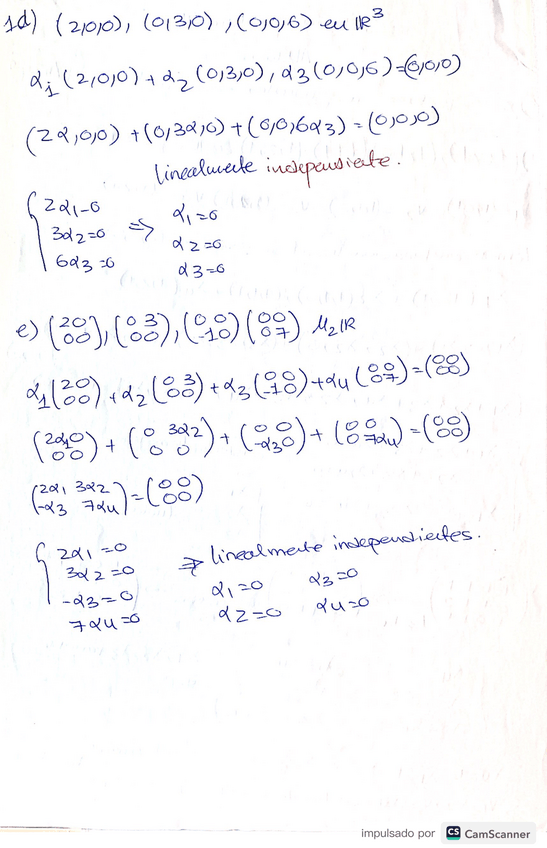 1d) (2,0,0), (0,3,0), (0,0,6) en ℝ³
α₁ (2,0,0) + α₂ (0,3,0), α₃ (0,0,6) = (0,0,0)
(2α,0,0) + (0,3α,0) + (0,0,6α3) = (0,0,0)
linealmente independiente.
{ 2α₁=0 ⇒ α₁=0
3α2=0 α2=0
6α3=0 α3=0
e) (2 0 / 0 0), (0 3 / 0 0), (0 0 / -1 0) (0 0 / 0 7) M₂ℝ
α₁ (2 0 / 0 0) + α₂ (0 3 / 0 0) + α₃ (0 0 / -1 0) + α4 (0 0 / 0 7) = (0 0 / 0 0)
(2α₁ 0 / 0 0) + (0 3α2 / 0 0) + (0 0 / -α3 0) + (0 0 / 0 7α4) = (0 0 / 0 0)
(2α₁ 3α2 / -α3 7α4) = (0 0 / 0 0)
{ 2α₁=0 ⇒ linealmente independientes.
3α2=0 α₁=0 α3=0
-α3=0 α2=0 α4=0
7α4=0
impulsado por CS CamScanner